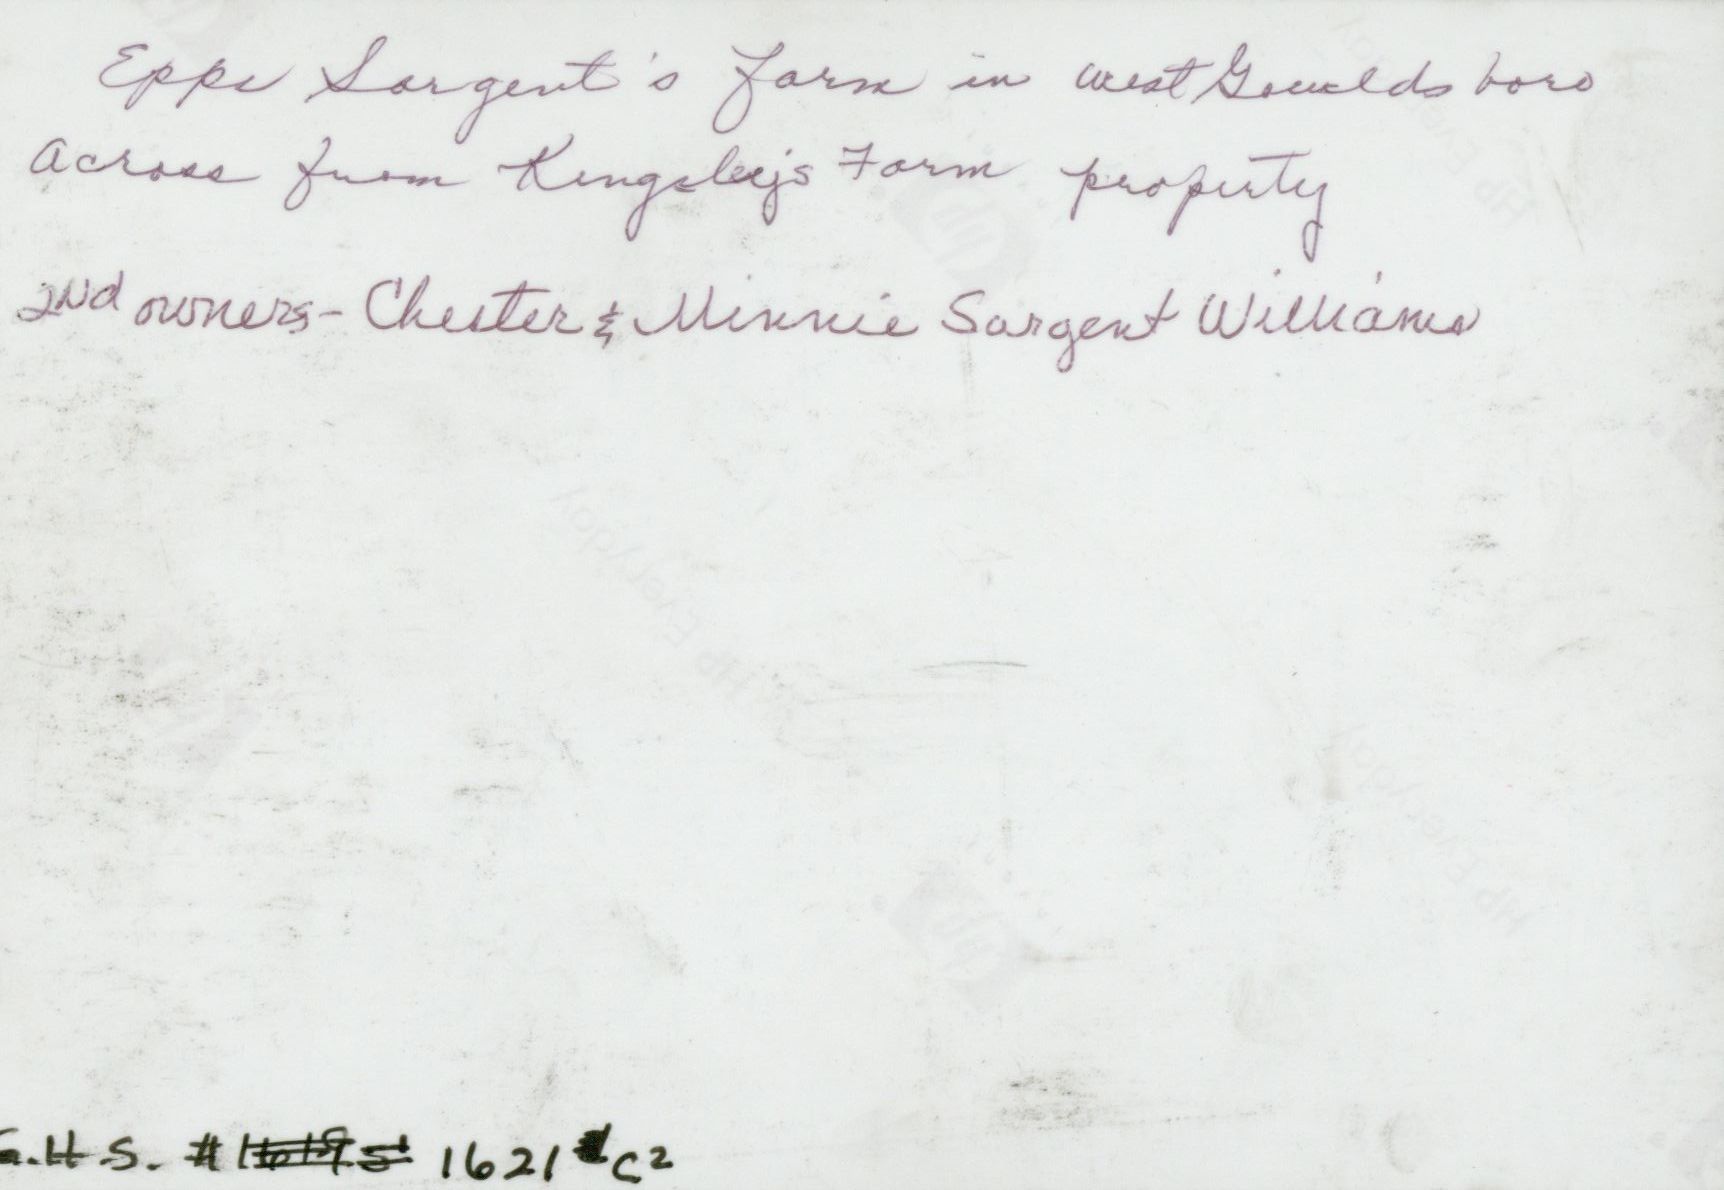 Epps Sargent's farm in west Gouldsboro
Across from Kingsley's Farm property
2nd owners - Chester & Minnie Sargent Williams
HP Everyday
HP Everyday
G.H.S. # 1621 C2